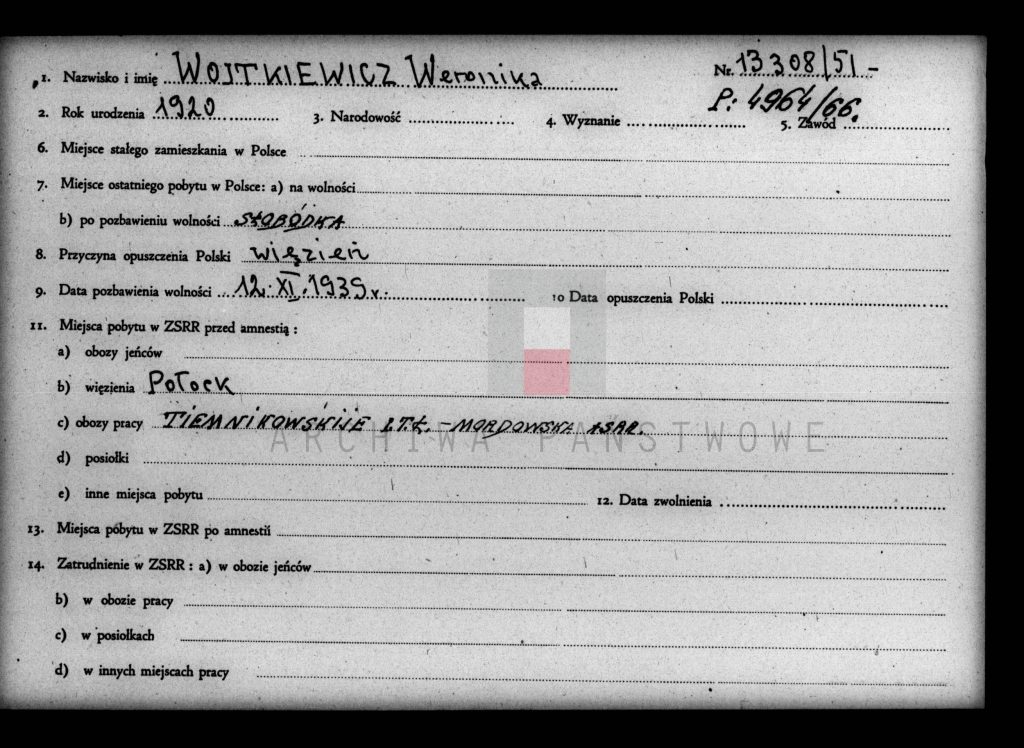 1. Nazwisko i imię WOJTKIEWICZ Weronika Nr. 13308/51-
P: 4964/66.
2. Rok urodzenia 1920 3. Narodowość 4. Wyznanie 5. Zawód
6. Miejsce stałego zamieszkania w Polsce
7. Miejsce ostatniego pobytu w Polsce: a) na wolności
b) po pozbawieniu wolności SŁOBÓDKA
8. Przyczyna opuszczenia Polski więzień
9. Data pozbawienia wolności 12.XI.1939 r. 10 Data opuszczenia Polski
11. Miejsca pobytu w ZSRR przed amnestią:
a) obozy jeńców
b) więzienia Połock
c) obozy pracy TIEMNIKOWSKIJE I.T.Ł. - MORDOWSKA ASRR.
ARCHIWA PAŃSTWOWE
d) posiołki
e) inne miejsca pobytu 12. Data zwolnienia
13. Miejsca pobytu w ZSRR po amnestii
14. Zatrudnienie w ZSRR: a) w obozie jeńców
b) w obozie pracy
c) w posiołkach
d) w innych miejscach pracy